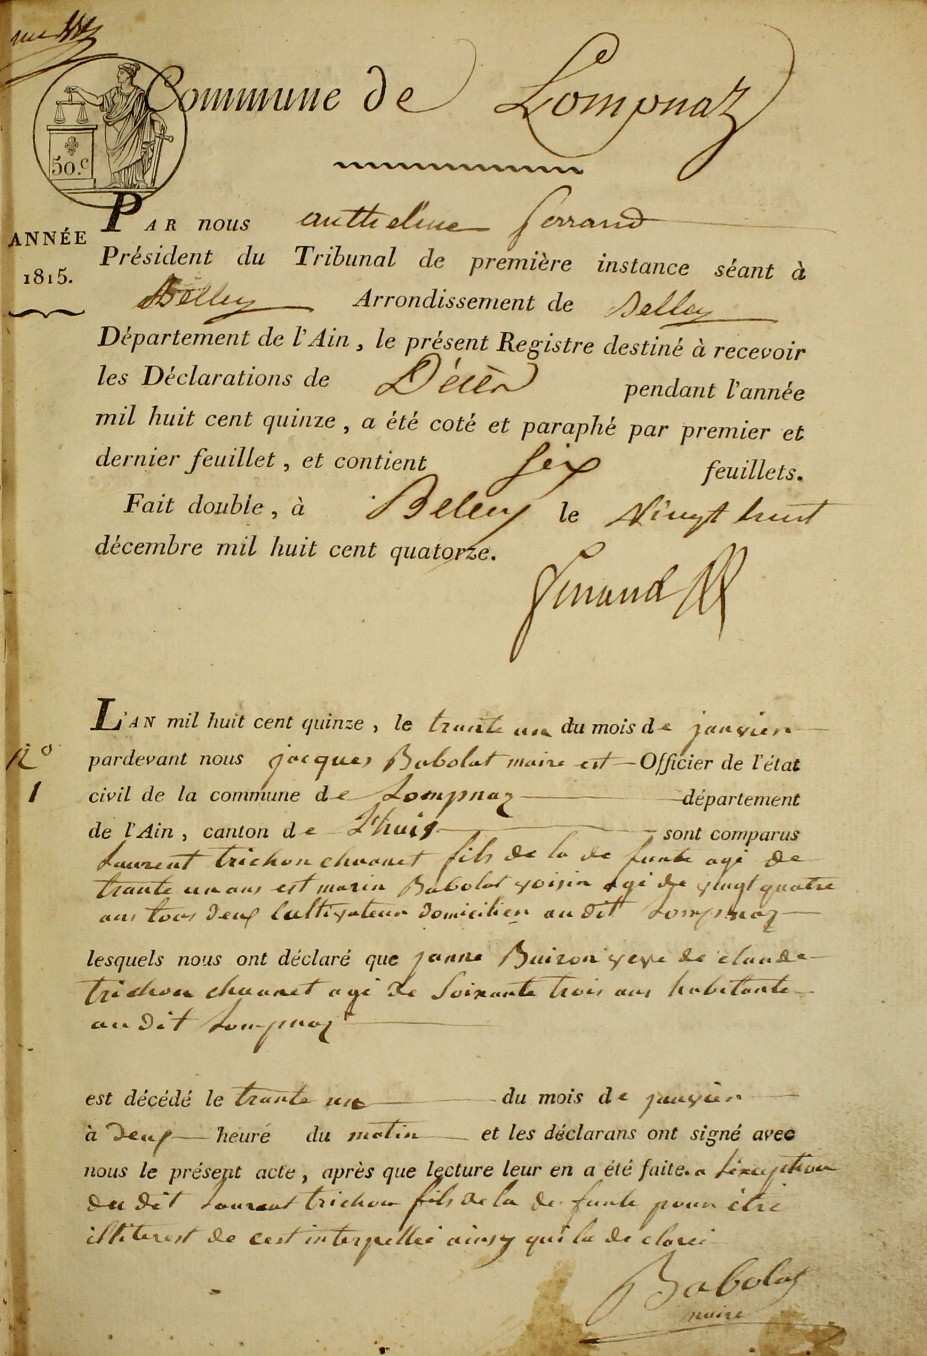 Commune de Lompnaz
50.c
ANNÉE
1815.
PAR nous anthelme ferrand
Président du Tribunal de première instance séant à
Belley Arrondissement de Belley
Département de l'Ain, le présent Registre destiné à recevoir
les Déclarations de Décès pendant l'année
mil huit cent quinze, a été coté et paraphé par premier et
dernier feuillet, et contient six feuillets.
Fait double, à Belley le vingt huit
décembre mil huit cent quatorze.
N°
1
L'AN mil huit cent quinze, le trante un du mois de janvier
pardevant nous jacques Babolat maire est Officier de l'état
civil de la commune de Lompnaz département
de l'Ain, canton de L'huis sont comparus
Laurent trichon chavanet fils de la de funte agé de
trante un ans est marin Babolat voisin agé de vingt quatre
ans tous deux Cultivateur domicilien au dit Lompnaz
lesquels nous ont déclaré que janne Buizon veve de claude
trichon chavanet agé de Soixante trois ans habitante
au dit Lompnaz
est décédé le trante un du mois de janvier
à deux heure du matin et les déclarans ont signé avec
nous le présent acte, après que lecture leur en a été faite. a Lexeption
du dit Laurent trichon fils de la de funte pour étre
illiterest de cest interpellié ainsy quil a declarei
Babolat
maire